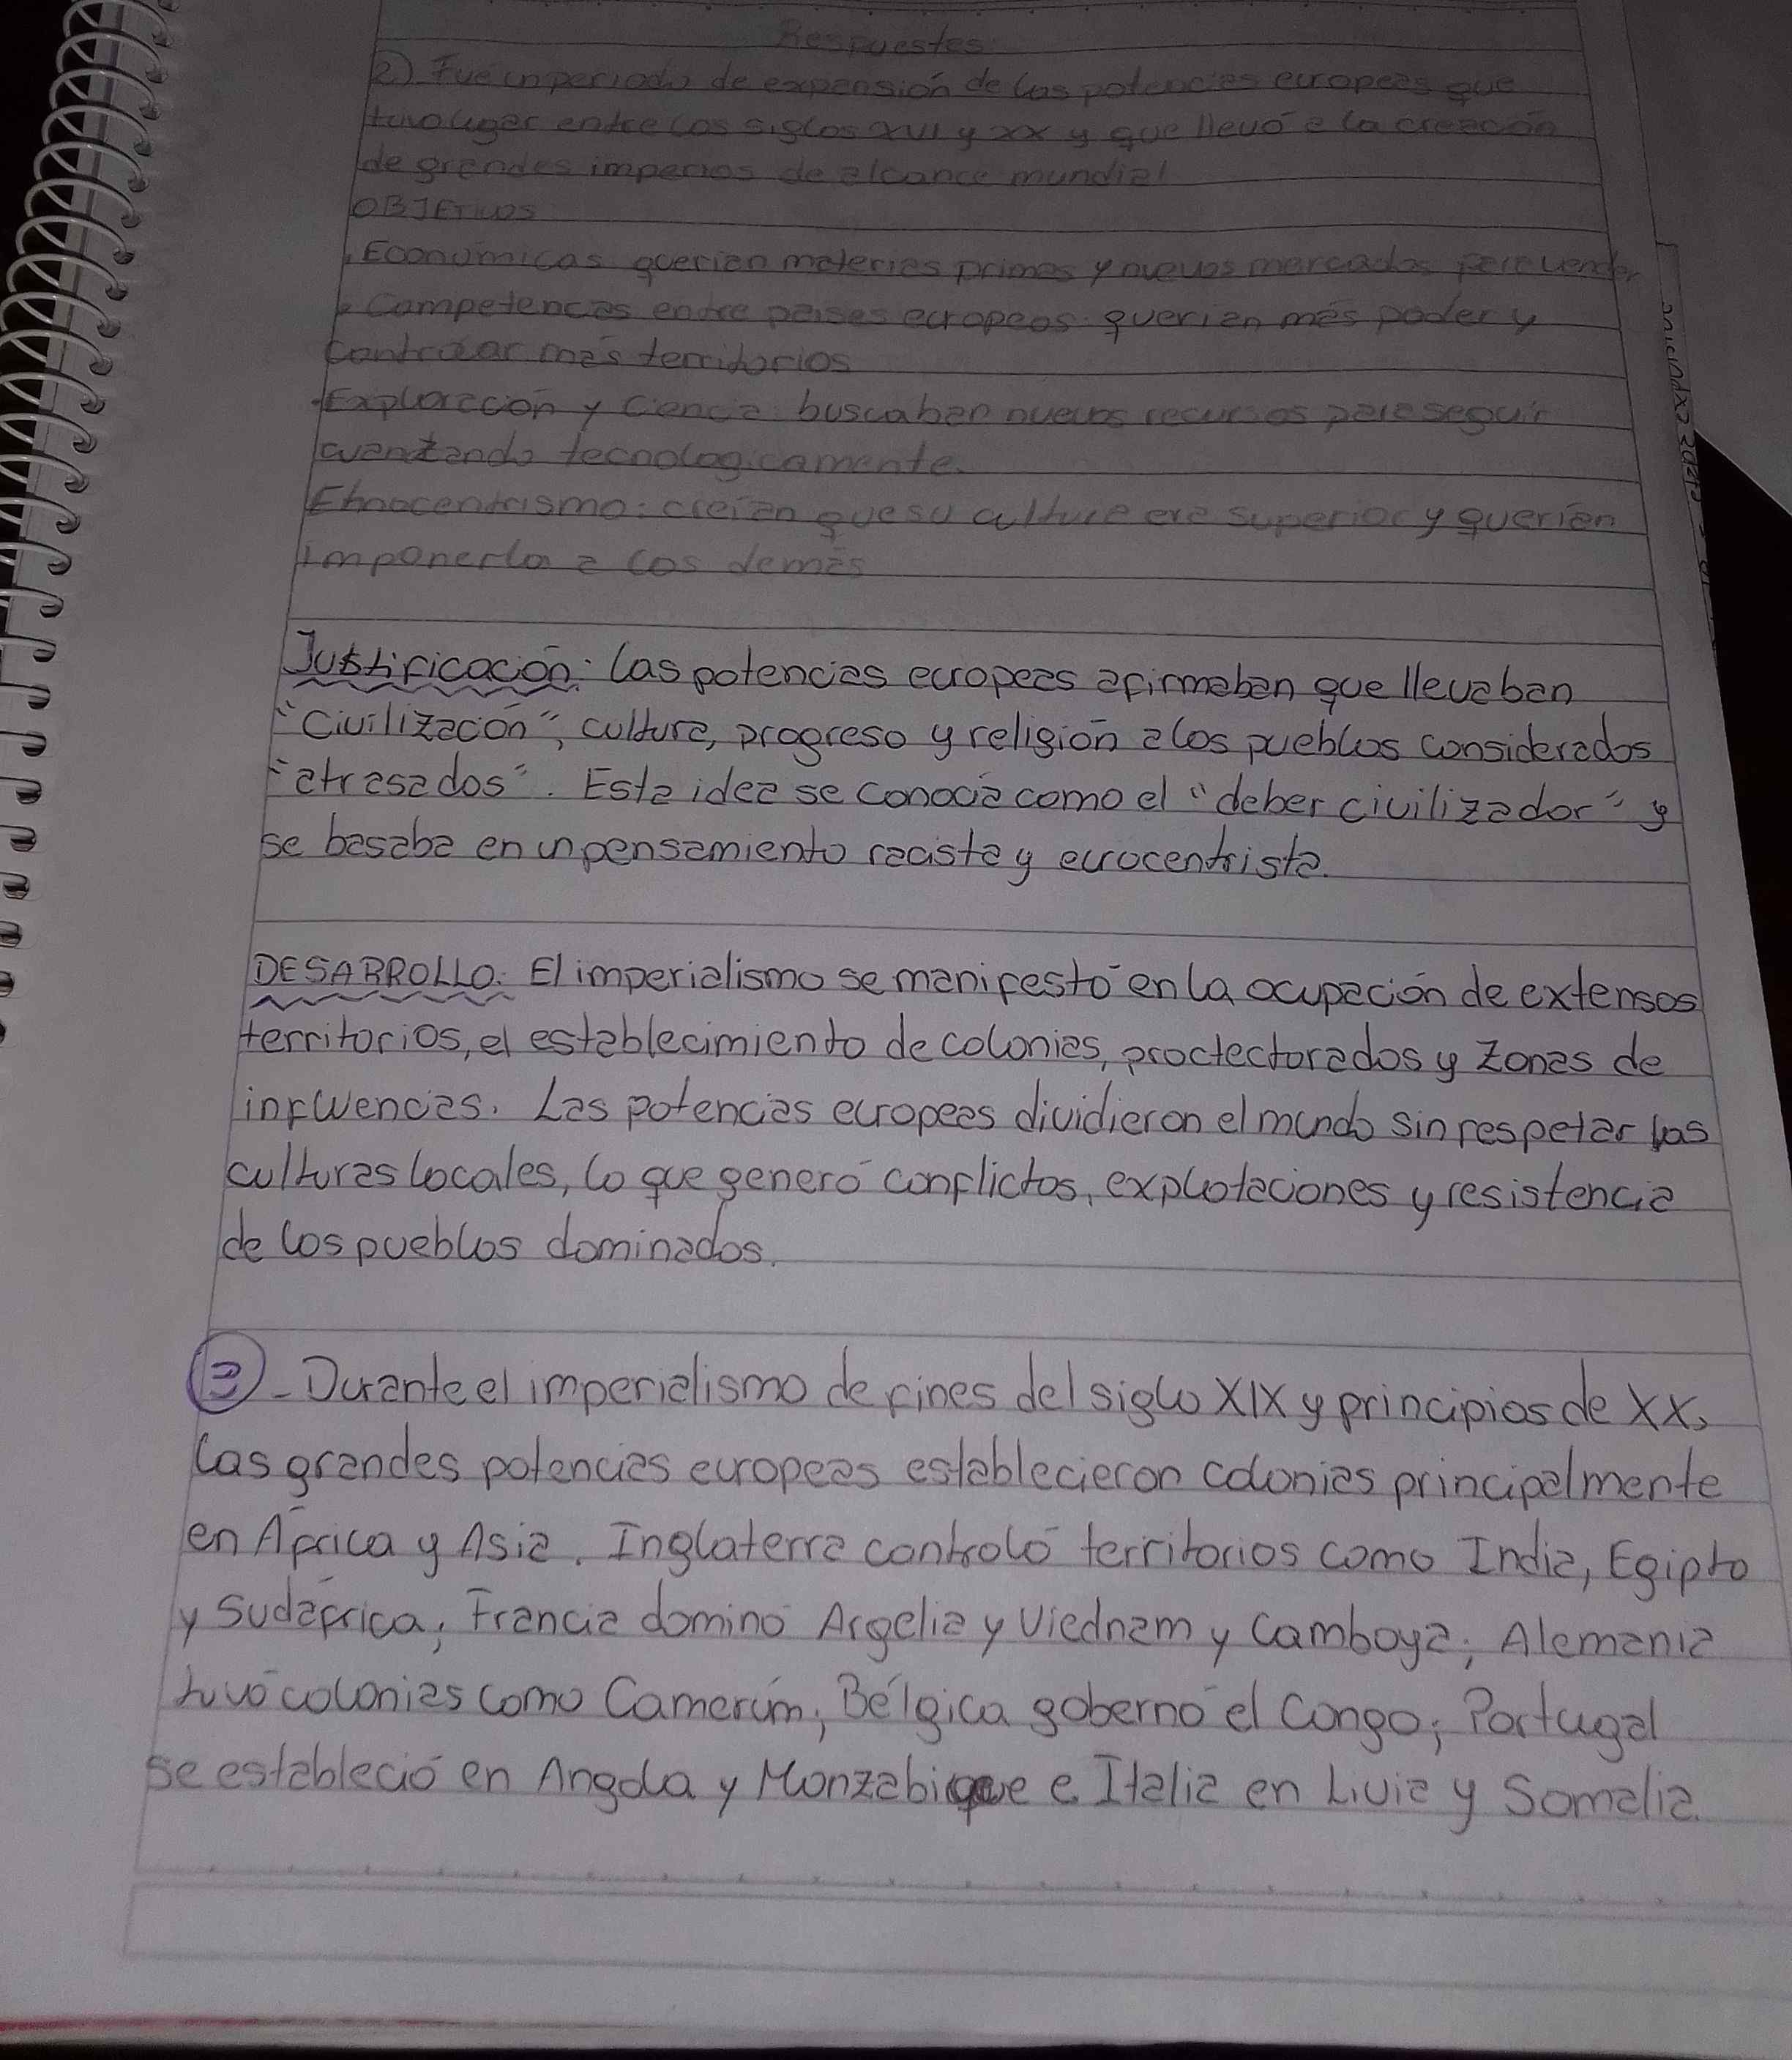 Respuestas
2) Fue un periodo de expansión de las potencias europeas que
tuvo lugar entre los siglos XVI y XX y que llevó a la creación
de grandes imperios de alcance mundial
OBJETIVOS
. Económicas querian materias primas y nuevos mercados para vender
• Competencias entre paises europeos querian más poder y
controlar más territorios
• Exploración y Ciencia buscaban nuevos recursos para seguir
avanzando tecnologicamente.
Etnocentrismo: creían que su cultura era superior y querían
imponerla a los demás
Justificación: las potencias europeas afirmaban que llevaban
"Civilización", cultura, progreso y religión a los pueblos considerados
"atrasados". Esta idea se conocía como el "deber civilizador" y
se basaba en un pensamiento racista y eurocentrista.
DESARROLLO: El imperialismo se manifestó en la ocupación de extensos
territorios, el establecimiento de colonias, proctectorados y zonas de
influencias. Las potencias europeas dividieron el mundo sin respetar las
culturas locales, lo que generó conflictos, explotaciones y resistencia
de los pueblos dominados.
3 - Durante el imperialismo de fines del siglo XIX y principios de XX,
las grandes potencias europeas establecieron colonias principalmente
en África y Asia. Inglaterra controló territorios como India, Egipto
y Sudáfrica; Francia dominó Argelia y Viednam y Camboya; Alemania
tuvo colonias como Camerúm; Bélgica gobernó el Congo; Portugal
se estableció en Angola y Monzabique e Italia en Livia y Somalia.